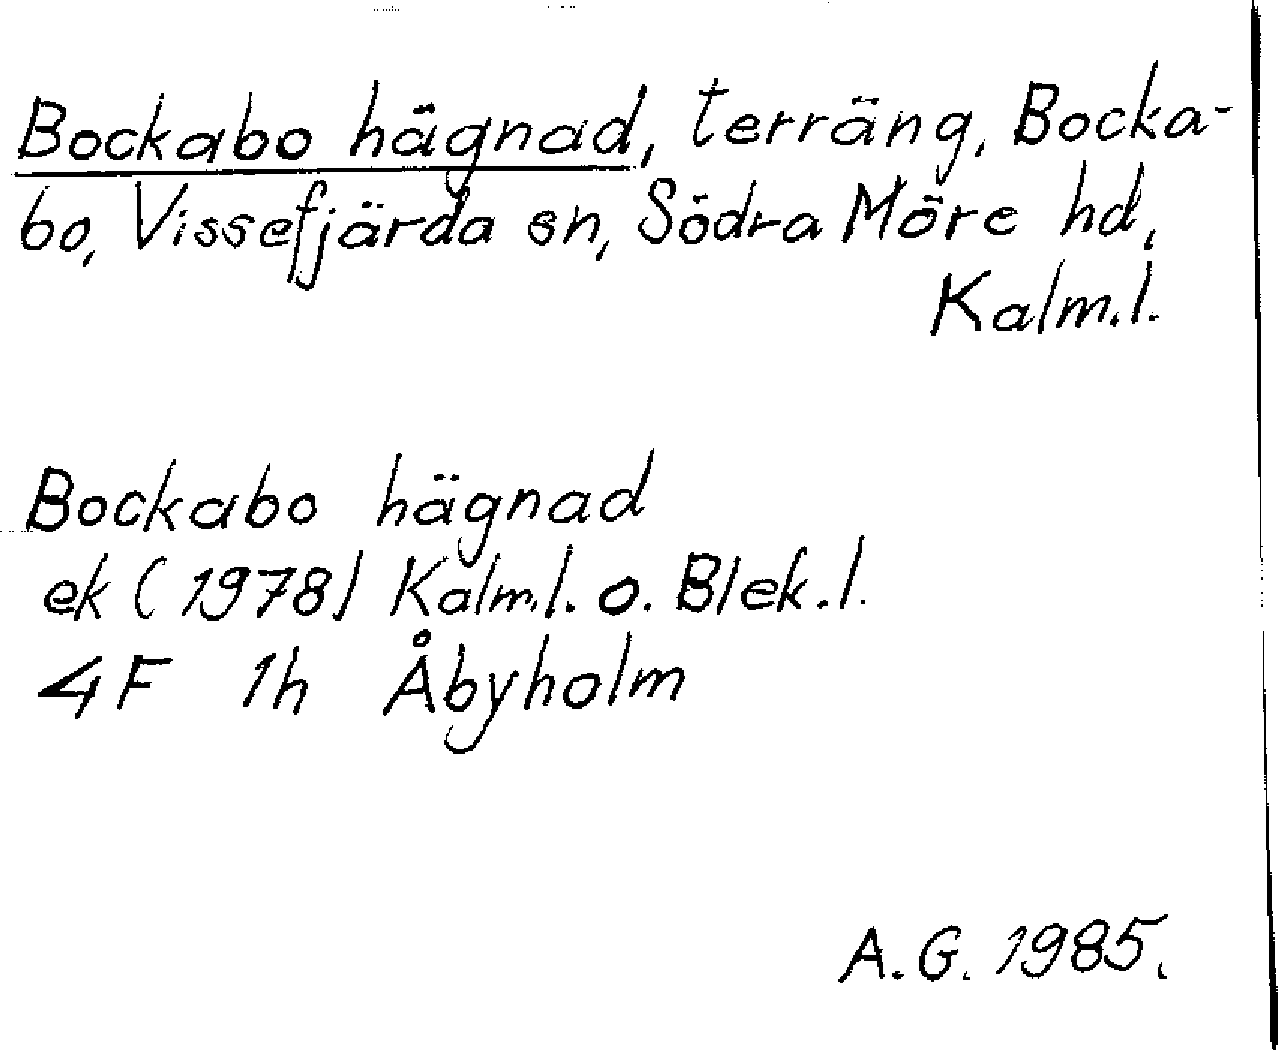 Bockabo hägnad, terräng, Bocka-
bo, Vissefjärda sn, Södra Möre hd,
Kalm.l.
Bockabo hägnad
ek (1978) Kalm.l. o. Blek.l.
4F 1h Åbyholm
A.G. 1985.